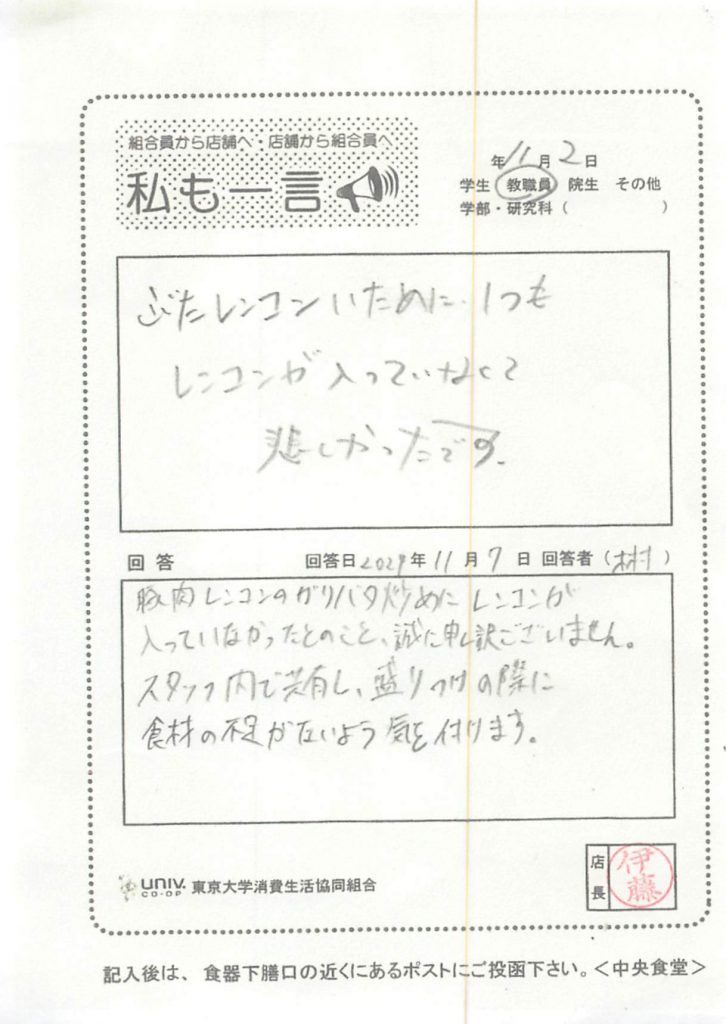 組合員から店舗へ・店舗から組合員へ
私も一言
年11月2日
学生 教職員 院生 その他
学部・研究科( )
ぶたレンコンいために、1つも
レンコンが入っていなくて
悲しかったです。
回答 回答日 年11月7日 回答者( )
豚肉レンコンのガリバタ炒めにレンコンが
入っていなかったとのこと、誠に申し訳ございません。
スタッフ内で共有し、盛りつけの際に
食材の不足がないよう気を付けます。
店長 伊藤
UNIV. CO-OP 東京大学消費生活協同組合
記入後は、食器下膳口の近くにあるポストにご投函下さい。<中央食堂>